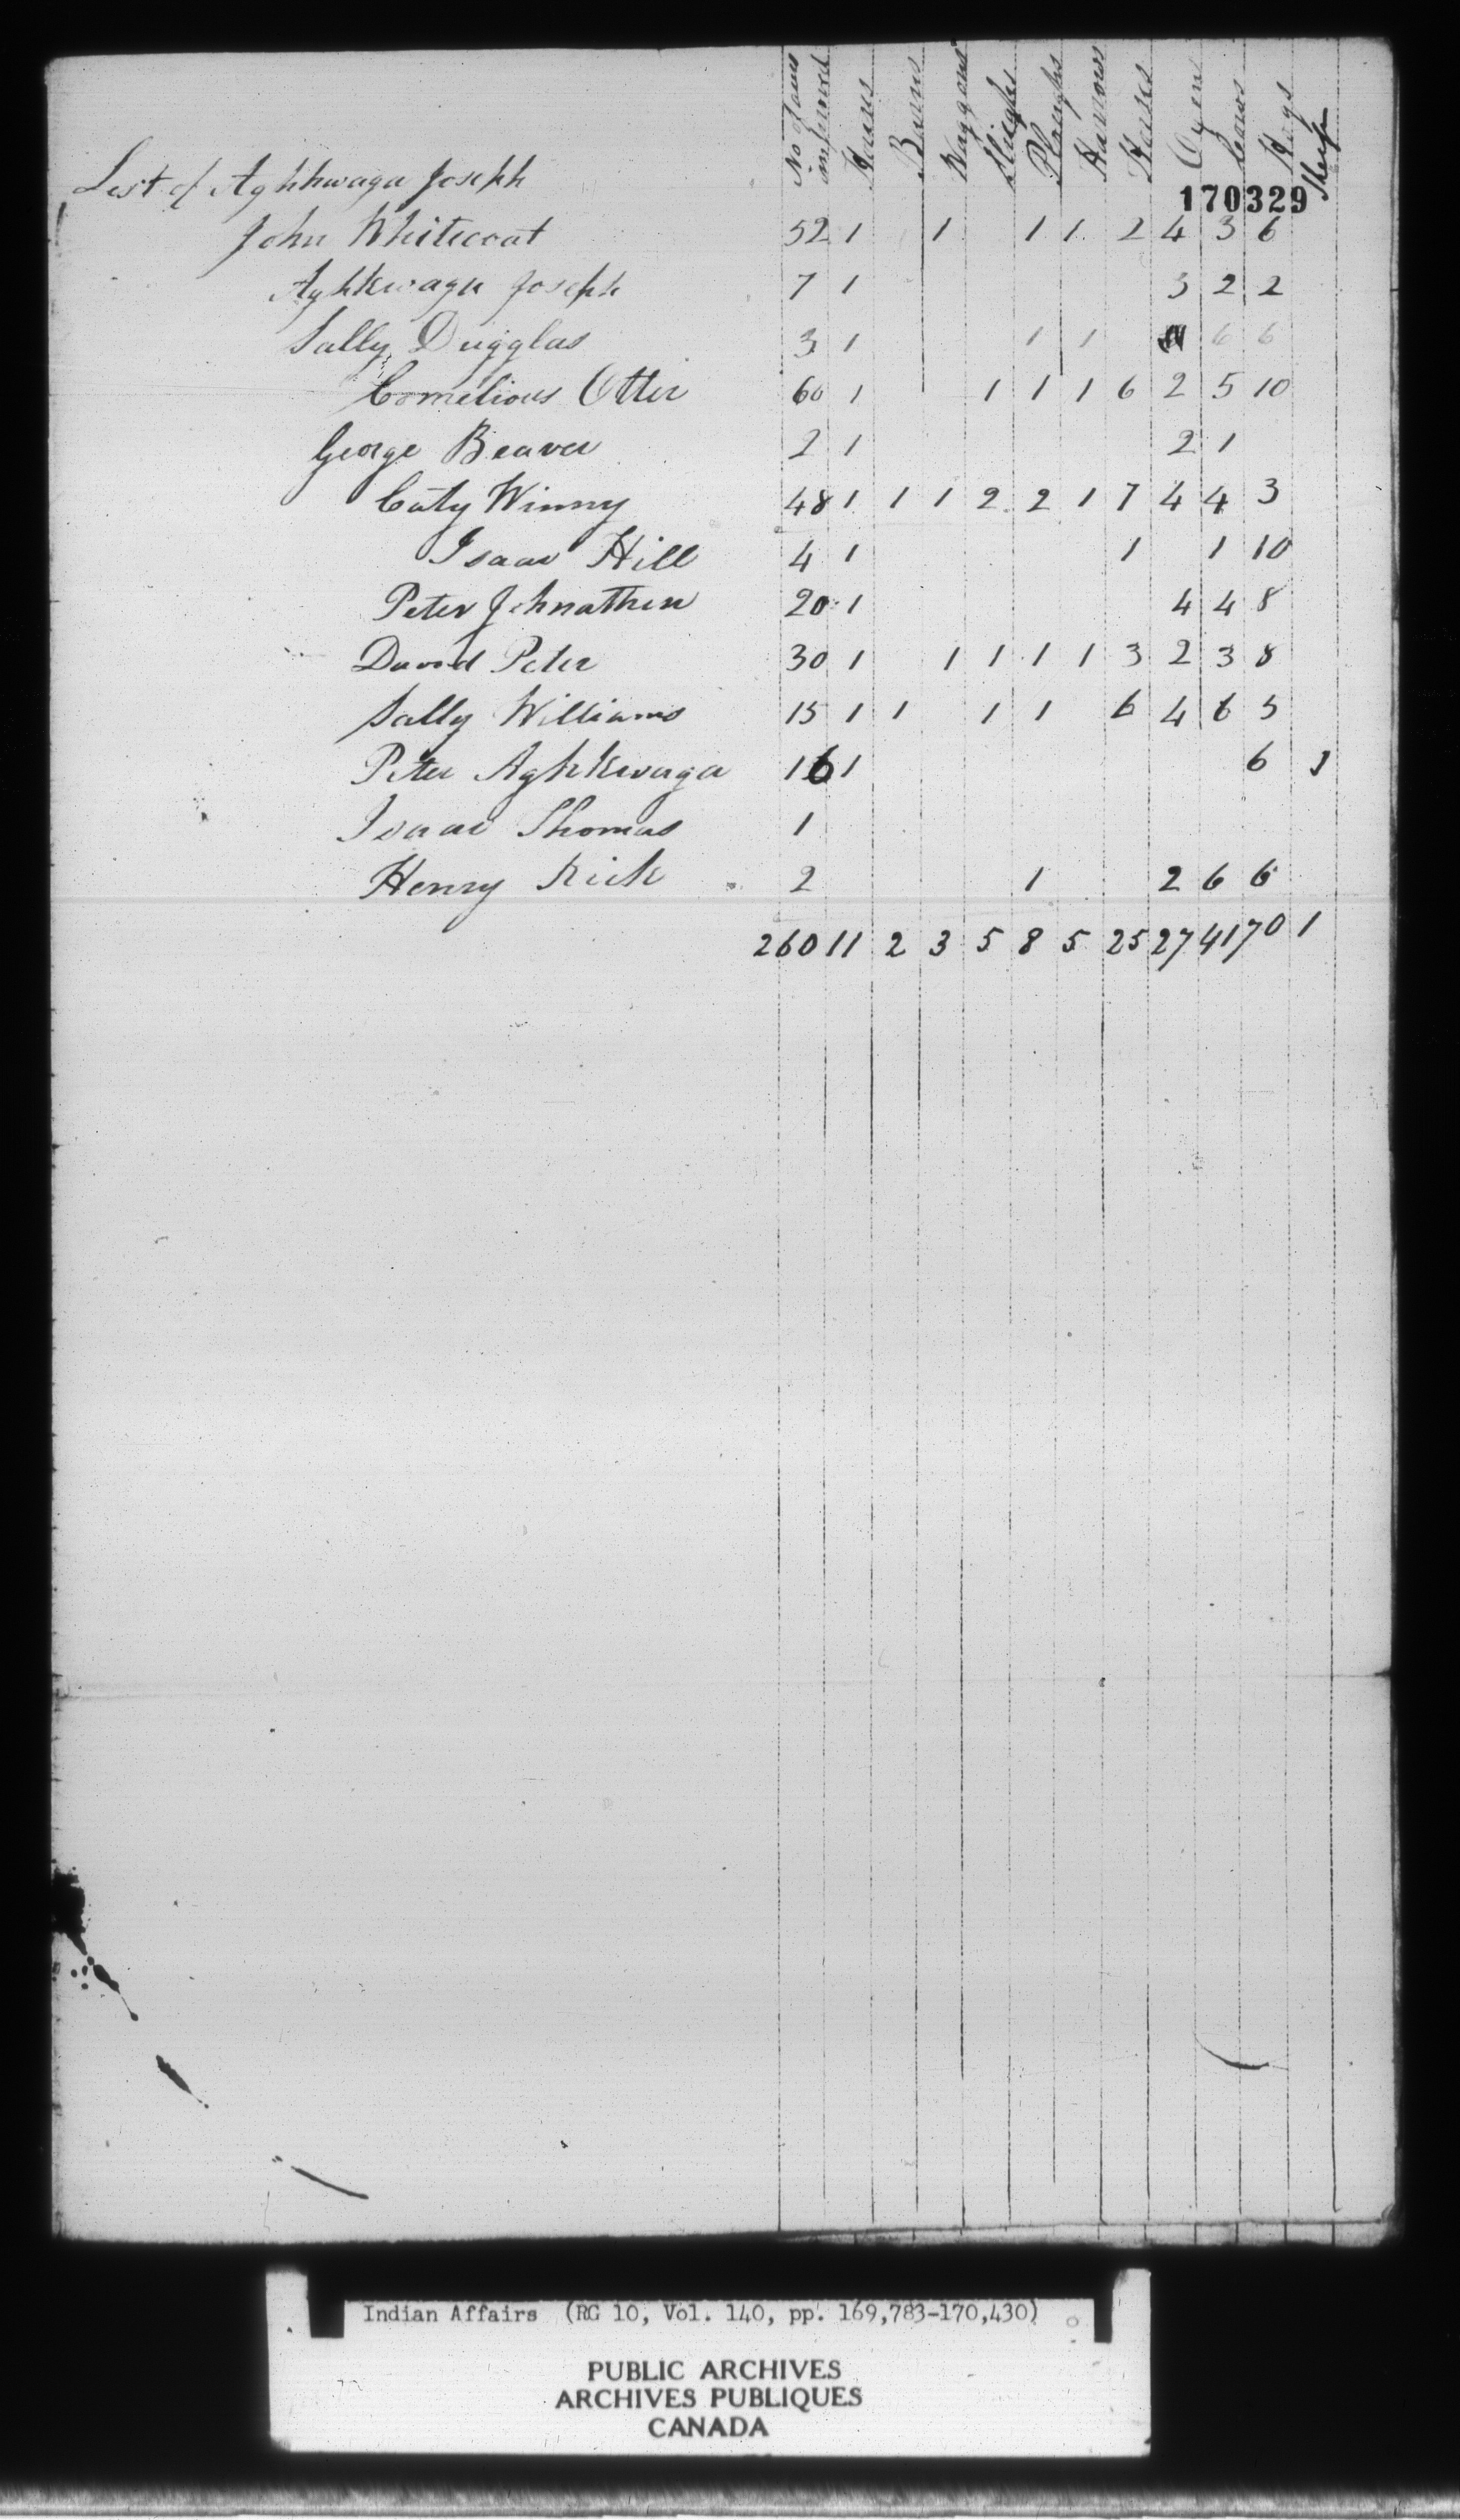 No of acres improved Houses Barns Waggons Sleighs Ploughs Harrows Horses Oxen Cows Hogs Sheep
List of Aghkwaga Joseph
170329
John Whitecoat 52 1 1 1 1 2 4 3 6
Aghkwaga Joseph 7 1 3 2 2
Sally Dugglas 3 1 1 1 6 6
Cornelious Otter 60 1 1 1 1 6 2 5 10
George Beaver 2 1 2 1
Caty Winny 48 1 1 1 2 2 1 7 4 4 3
Isaac Hill 4 1 1 1 10
Peter Johnathen 20 1 4 4 8
David Peter 30 1 1 1 1 1 3 2 3 8
Sally Williams 15 1 1 1 1 6 4 6 5
Peter Aghkwaga 16 1 6 1
Isaac Thomas 1
Henry Kick 2 1 2 6 6
260 11 2 3 5 8 5 25 27 41 70 1
Indian Affairs (RG 10, Vol. 140, pp. 169,783-170,430)
PUBLIC ARCHIVES
ARCHIVES PUBLIQUES
CANADA